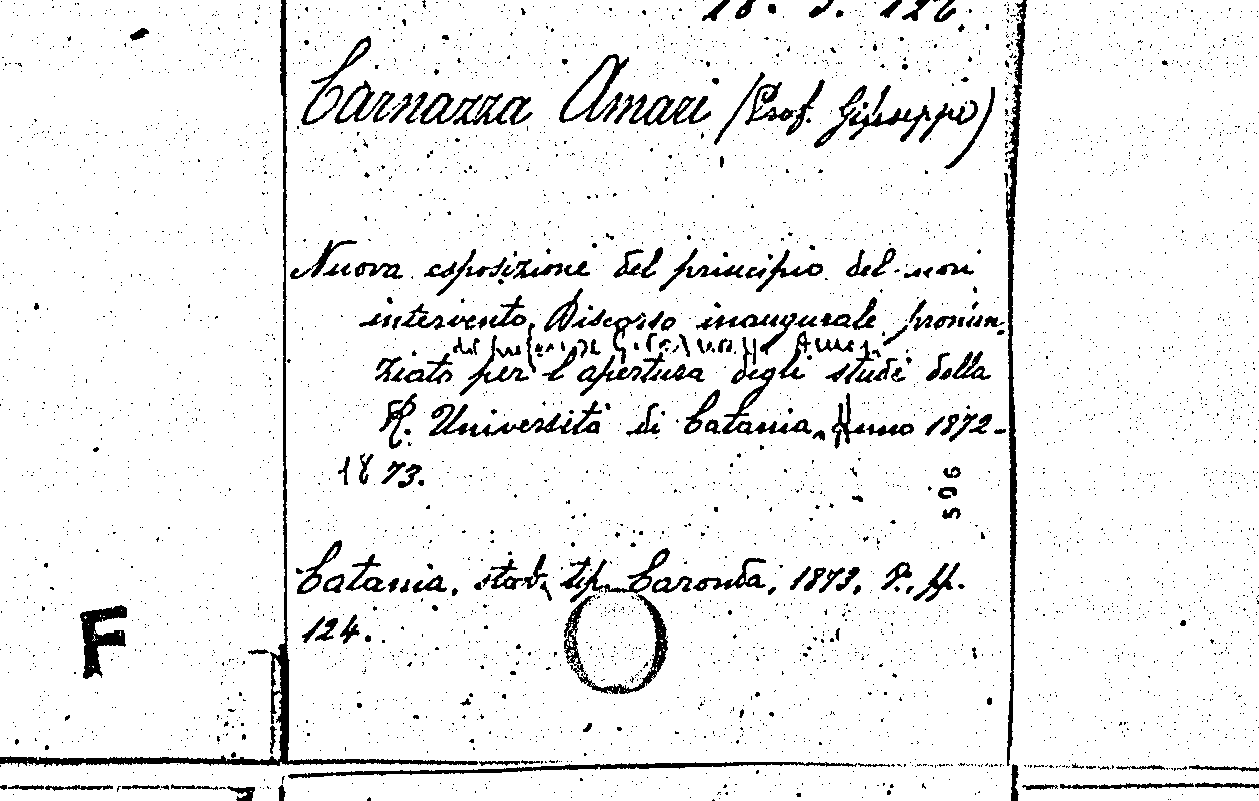 Carnazza Amari (Prof. Giuseppe)
Nuova esposizione del principio del non
intervento. Discorso inaugurale pronun-
ziato per l'apertura degli studi della
R. Università di Catania, Anno 1872-
1873.
596
Catania, stab. tip. Caronda, 1873, 8., pp.
124.
F